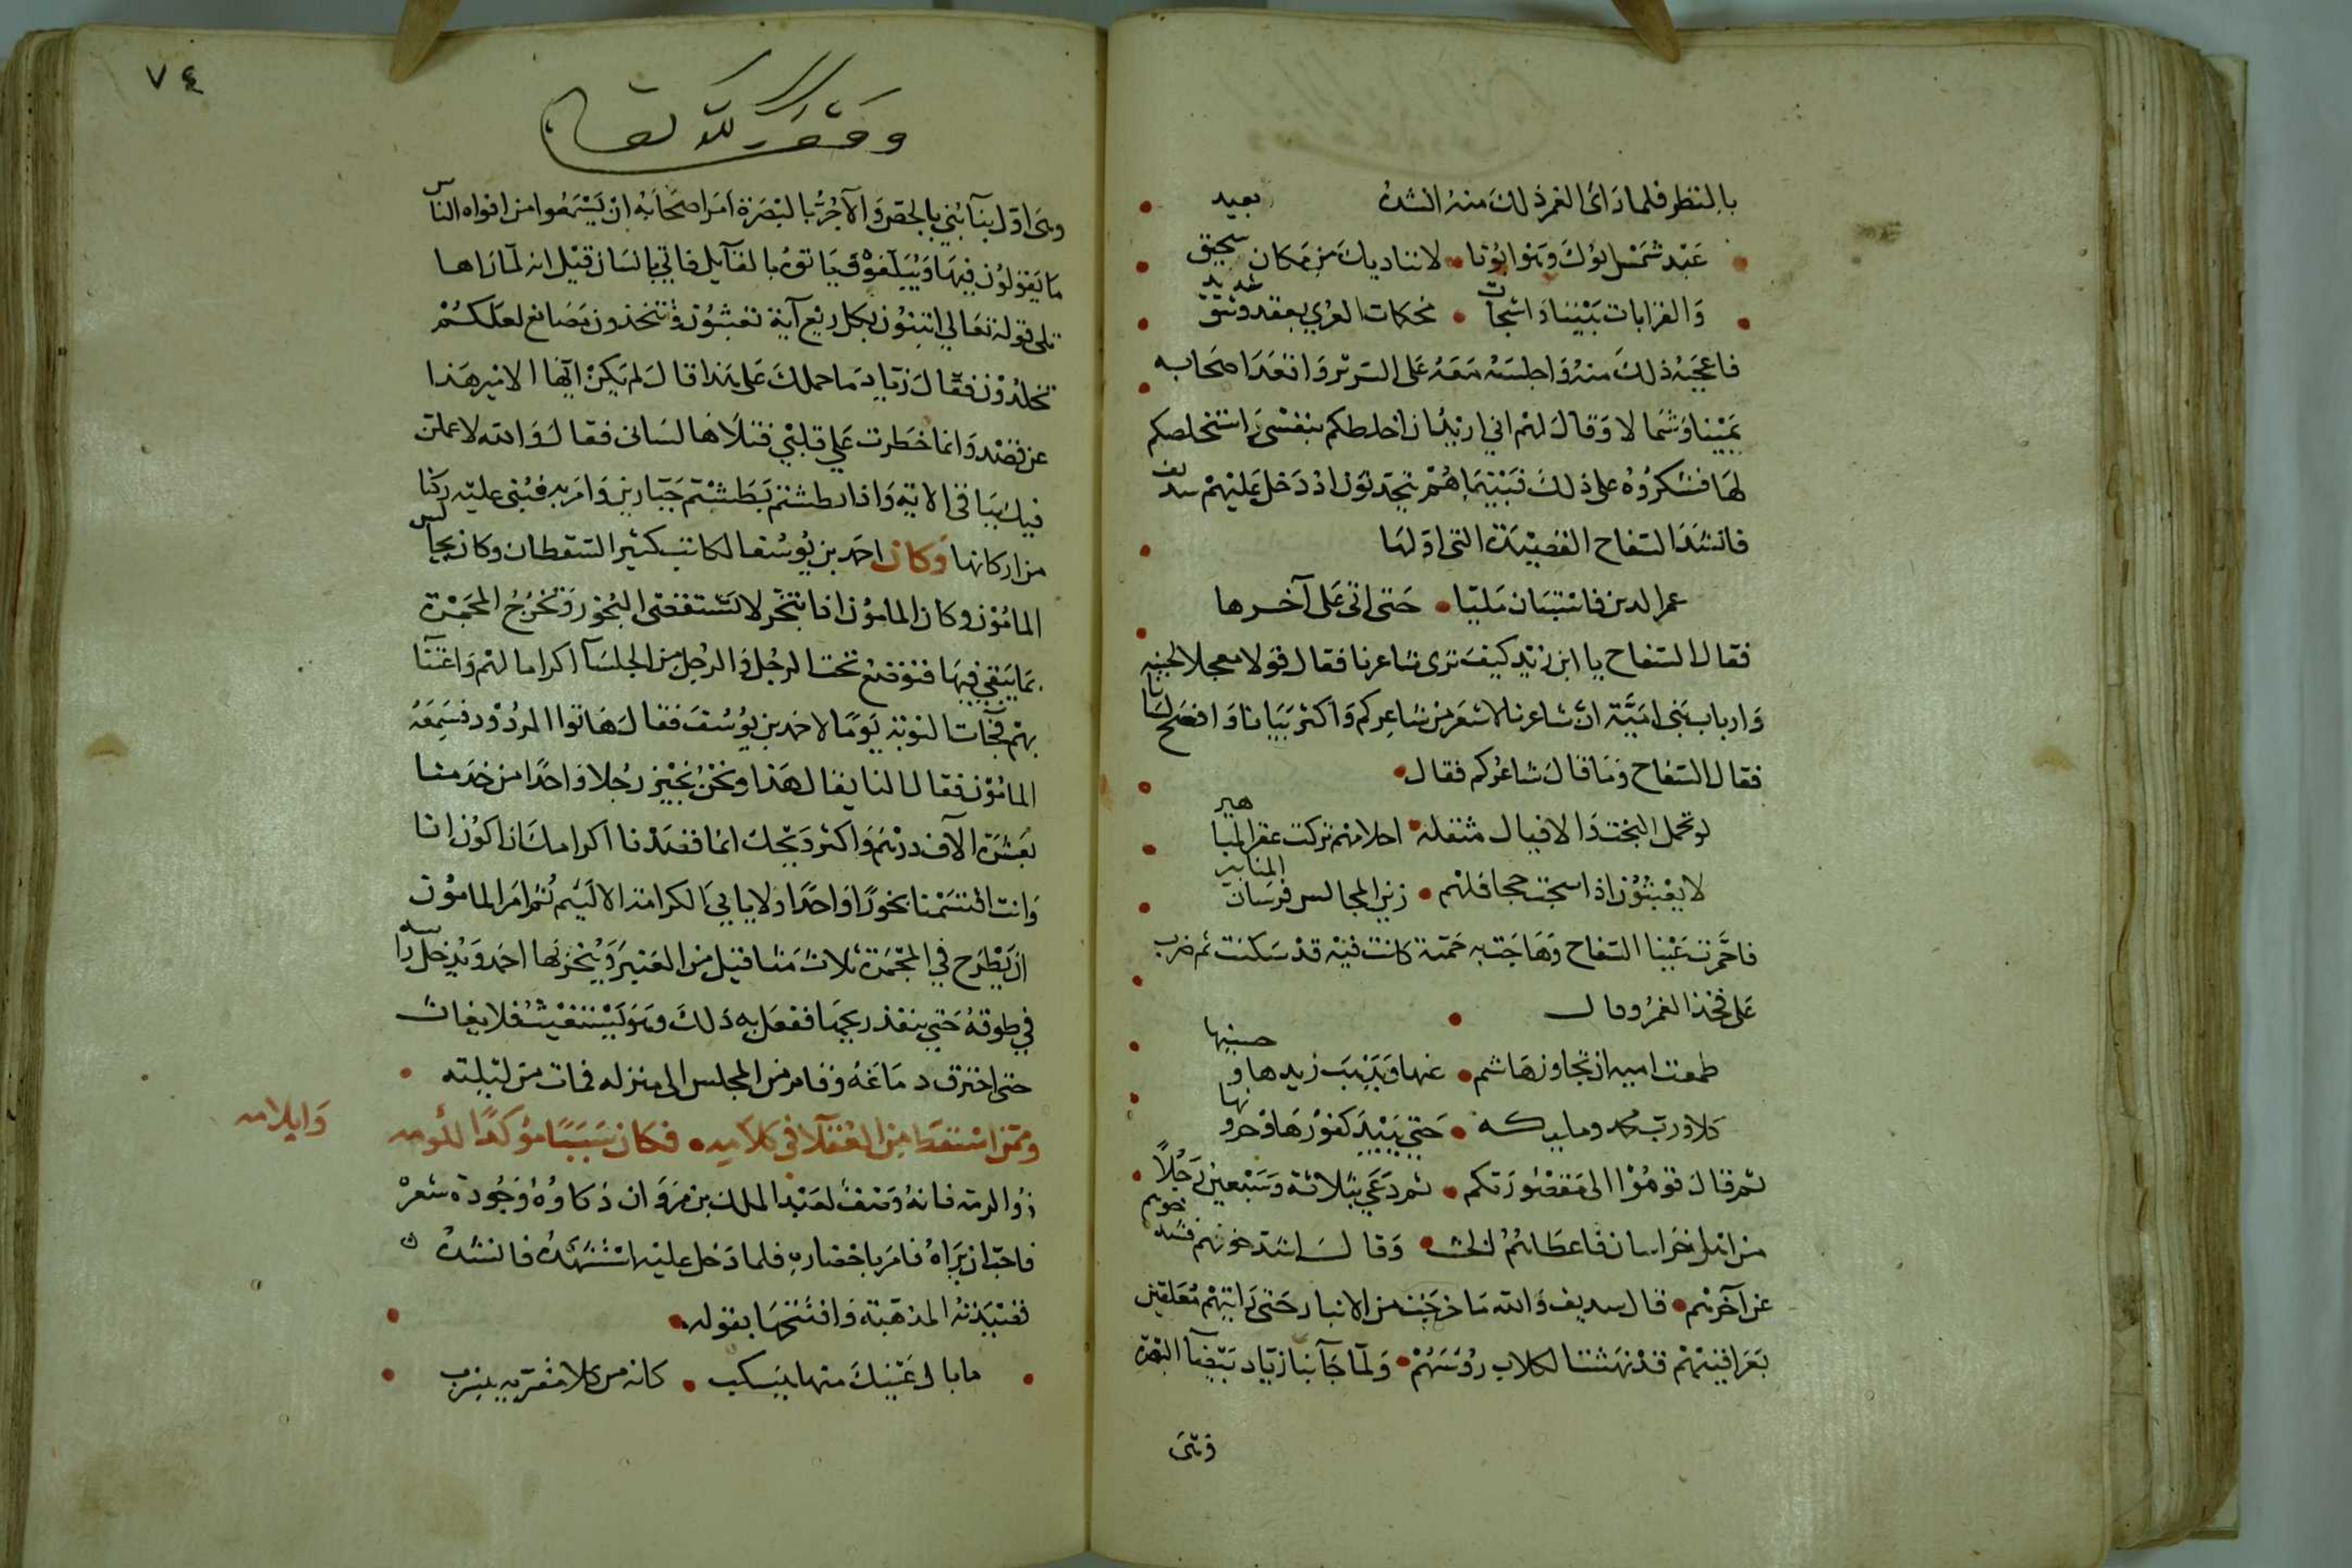 بالنظر فلما رأى الغمر ذلك منه انشده
عبد شمس ابوك وهو ابونا • لا نناديك من مكان بعيد سحيق
والقرابات بيننا واشجات • محكمات العرى بعقد وثيق شديد
فاعجبه ذلك منه واجلسه معه على السرير واقعد اصحابه
يمينا وشمالا وقال لهم اني اريد ان اخلطكم بنفسي واستخلصكم
لها فشكروه على ذلك فبينما هم يتحدثون اذ دخل عليهم سديف
فانشد السفاح القصيدة التي اولها
عمر الدين فاستبان مليا • حتى اتى على آخرها
فقال السفاح يا ابن زيد كيف ترى شاعرنا فقال قولا معجلا لحينه
وارباب بني امية ان شاعرنا لاشعر من شاعركم واكثر بيانا وافصح لسانا
فقال السفاح وما قال شاعركم فقال •
لو تحمل البخت والافيال مثقلة • احلامهم تركت عقرا المباهير
لا يعبثون اذا سجت جحافلهم • زين المجالس فرسان المنابير
فاحمرت عينا السفاح وهاجت به حمية كانت فيه قد سكنت ثم ضرب
على فخذ الغمر وقال •
طمعت امية ان تجاوز هاشم • عنها ويذهب زيدها وحسينها
كلا ورب محمد ومليكه • حتى يبيد كفورها وخرونها
ثم قال قوموا الى مقصورتكم • ثم دعي بثلاثة وسبعين رجلا
من اهل خراسان فاعطاهم الخشب • وقال اشدخوهم فشدخوهم
عن آخرهم • قال سديف والله ما خرجت من الانبار حتى رايتهم معلقين
بعراقيبهم قد نهشت الكلاب رؤسهم • ولما جآ بنا زياد بيضآ البصرة
وهى
٧٤
وقف لله تعالى
وهى اول بنآ بني بالجص والآجر بالبصرة امر اصحابه ان يستمعوا من افواه الناس
ما يقولون فيها ويبلغوه وياتوه بالقآيل فاتي بانسان قيل انه لما راها
تلى قوله تعالي اتبنون بكل ريع آية تعبثون وتتخذون مصانع لعلكم
تخلدون فقال زياد ما حملك على هذا قال لم يكن ايها الامير هذا
عن قصد وانما خطرت علي قلبي فتلاها لساني فقال والله لاعملن
فيك بباقي الاية واذا بطشتم بطشتم جبارين وامر به فبني عليه ركنا
من اركانها وكان احمد بن يوسف الكاتب كثير السقطات وكان يجالس
المامون وكان المامون اذا تبخر لا يستقصى البخور وتخرج المجمرة
بما يبقى فيها فتوضع تحت الرجل والرجل من الجلسآ اكراما لهم واعتنآ
بهم فجآت النوبة يوما لاحمد بن يوسف فقال هاتوا المردود فسمعه
المامون فقال النا يقال هذا ونحن نجيز رجلا واحدا من خدمنا
بعشرة الآف درهم واكثر ويحك انما قصدنا اكرامك ان اكون انا
وانت اقتسمنا بخورا واحدا ولا يابي الكرامة الا ليئم ثم امر المامون
ان يطرح في المجمرة ثلاث مثاقيل من العنبر ويبخر بها احمد ويدخل راسه
في طوقه حتي ينفذ ريحها ففعل به ذلك وهو يستغيث فلا يغاث
حتى احترق دماغه وقام من المجلس الى منزله فمات من ليلته •
وممن استقطا من العقلآ في كلامه • فكان سببا مؤكدا للومه وايلامه
ذو الرمة فانه وصف لعبد الملك بن مروان ذكاوه وجودة شعره
فاحب ان يراه فامر باحضاره فلما دخل عليه استشهده فانشده
قصيدته المذهبة وافتتحها بقوله •
• ما بال عينك منها ينسكب • كانه من كلا مفرية ينسرب